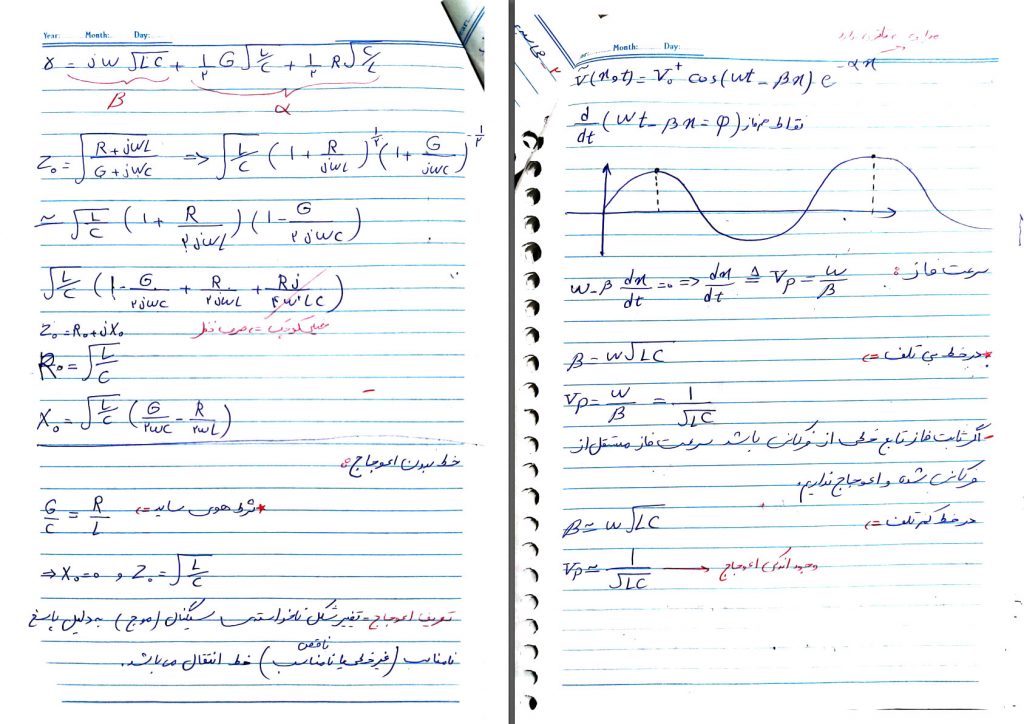 Year: Month: Day:
γ = jω √LC + ۱/۲ G √L/C + ۱/۲ R √C/L
β α
Z₀ = √(R + jωL / G + jωC) => √L/C (1 + R/jωL)^۱/۲ (1 + G/jωC)^-۱/۲
≃ √L/C (1 + R/۲jωL) (1 - G/۲jωC)
√L/C (1 - G/۲jωC + R/۲jωL + Rj/۴ω²LC)
Z₀ = R₀ + jX₀ صرف نظر
R₀ = √L/C
X₀ = √L/C (G/۲ωC - R/۲ωL)
خط بدون اعوجاج:
G/C = R/L شرط هوی ساید =>
=> X₀ = 0 و Z₀ = √L/C
تعریف اعوجاج = تغییر شکل ناخواسته سیگنال (موج) به دلیل پاسخ
ناقص
نامناسب (غیرخطی یا نامناسب) خط انتقال می باشد.
Month: Day:
ṽ(x,t) = V₀⁺ cos(ωt - βx) e^-αx
d/dt (ωt - βx = φ) نقاط هم فاز
ω - β dx/dt = 0 => dx/dt ≜ Vp = ω/β سرعت فاز:
β = ω√LC در خط بی تلف =>
Vp = ω/β = 1/√LC
- اگر ثابت فاز تابع خطی از فرکانس باشد سرعت فاز مستقل از
فرکانس شده و اعوجاج نداریم.
β ≃ ω√LC در خط کم تلف =>
Vp ≃ 1/√LC → وجود اندکی اعوجاج